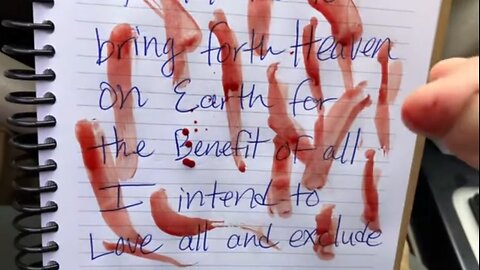 bring forth Heaven
on Earth for
the Benefit of all
I intend to
Love all and exclude